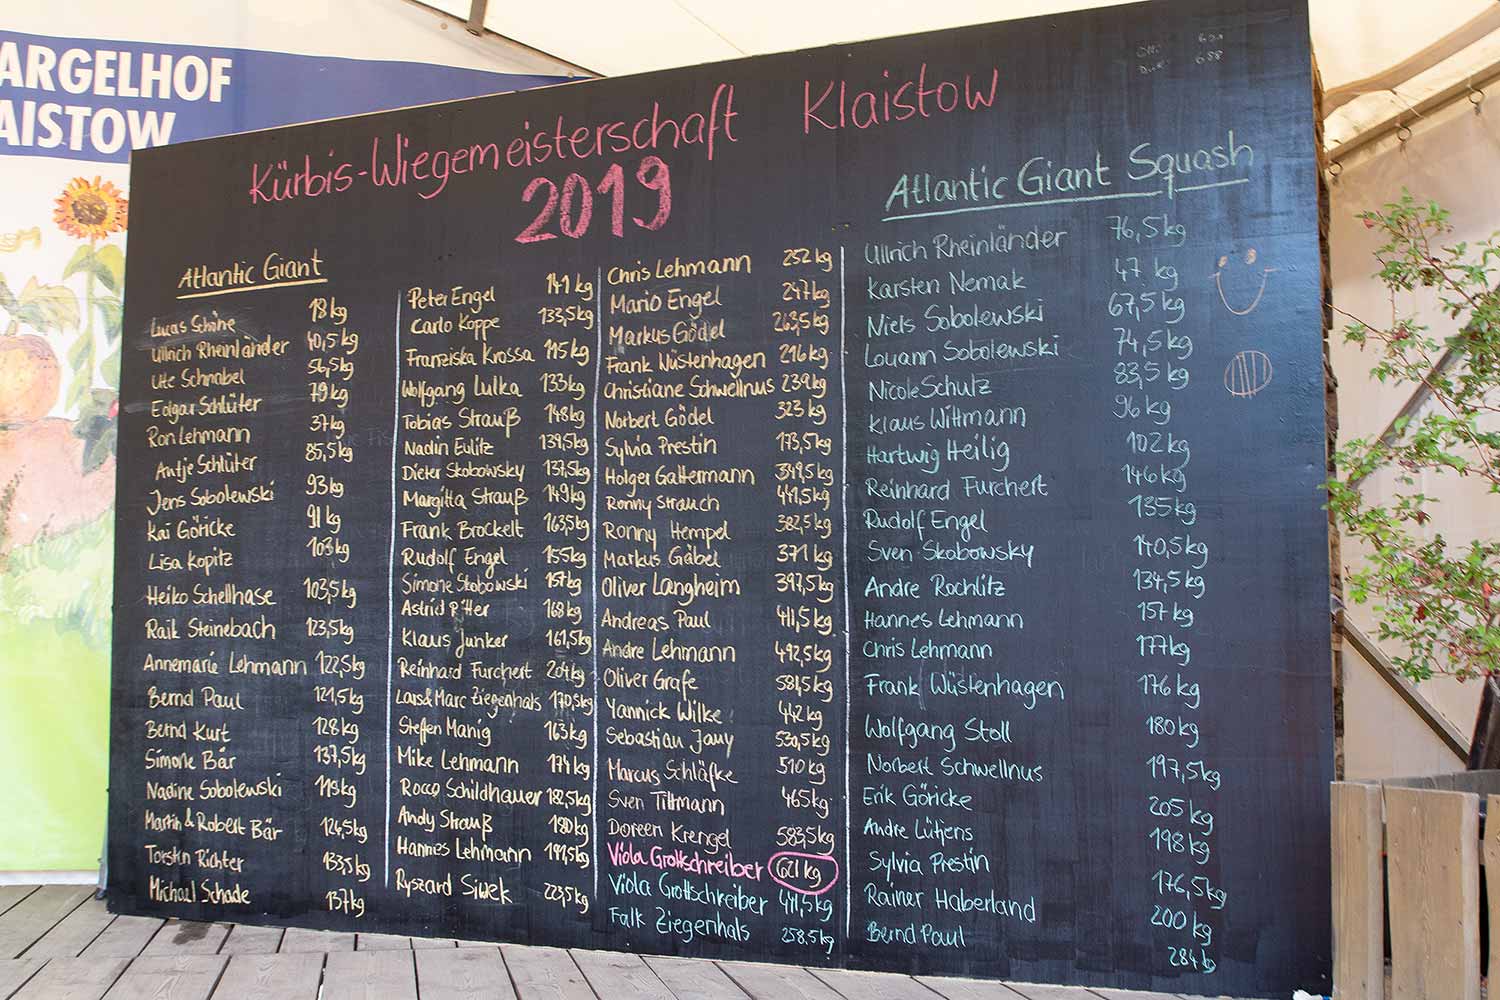 ARGELHOF
AISTOW
Kürbis-Wiegemeisterschaft Klaistow
2019
Atlantic Giant
Lucas Schöne 18 kg
Ullrich Rheinländer 40,5 kg
Ute Schnabel 56,5 kg
Edgar Schlüter 79 kg
Ron Lehmann 37 kg
Antje Schlüter 85,5 kg
Jens Sobolewski 93 kg
Kai Göricke 91 kg
Lisa Kopitz 103 kg
Heiko Schellhase 103,5 kg
Raik Steinebach 123,5 kg
Annemarie Lehmann 122,5 kg
Bernd Paul 121,5 kg
Bernd Kurt 128 kg
Simone Bär 137,5 kg
Nadine Sobolewski 115 kg
Martin & Robert Bär 124,5 kg
Torsten Richter 133,5 kg
Michael Schade 137 kg
Peter Engel 141 kg
Carlo Koppe 133,5 kg
Franziska Krossa 145 kg
Wolfgang Lulka 133 kg
Tobias Strauß 148 kg
Nadin Eulitz 139,5 kg
Dieter Skobowsky 137,5 kg
Margitta Strauß 149 kg
Frank Brockelt 163,5 kg
Rudolf Engel 155 kg
Simone Skobowski 157 kg
Astrid 168 kg
Klaus Junker 161,5 kg
Reinhard Furchert 204 kg
Lars & Marc Ziegenhals 170,5 kg
Steffen Manig 163 kg
Mike Lehmann 174 kg
Rocco Schildhauer 182,5 kg
Andy Strauß 180 kg
Hannes Lehmann 191,5 kg
Ryszard Siwek 223,5 kg
Chris Lehmann 252 kg
Mario Engel 247 kg
Markus Gödel 263,5 kg
Frank Wüstenhagen 216 kg
Christiane Schwellnus 239 kg
Norbert Gödel 323 kg
Sylvia Prestin 173,5 kg
Holger Gattermann 349,5 kg
Ronny Strauch 441,5 kg
Ronny Hempel 382,5 kg
Markus Gäbel 371 kg
Oliver Langheim 397,5 kg
Andreas Paul 411,5 kg
Andre Lehmann 492,5 kg
Oliver Grafe 581,5 kg
Yannick Wilke 442 kg
Sebastian Jany 530,5 kg
Marcus Schläfke 510 kg
Sven Tittmann 465 kg
Doreen Krengel 583,5 kg
Viola Grottschreiber 621 kg
Viola Grottschreiber 411,5 kg
Falk Ziegenhals 258,5 kg
Atlantic Giant Squash
Ullrich Rheinländer 76,5 kg
Karsten Nemak 47 kg
Niels Sobolewski 67,5 kg
Louann Sobolewski 74,5 kg
Nicole Schulz 83,5 kg
Klaus Wittmann 96 kg
Hartwig Heilig 102 kg
Reinhard Furchert 146 kg
Rudolf Engel 135 kg
Sven Skobowsky 140,5 kg
Andre Rochlitz 134,5 kg
Hannes Lehmann 157 kg
Chris Lehmann 177 kg
Frank Wüstenhagen 176 kg
Wolfgang Stoll 180 kg
Norbert Schwellnus 197,5 kg
Erik Göricke 205 kg
Andre Lütjens 198 kg
Sylvia Prestin 176,5 kg
Rainer Haberland 200 kg
Bernd Paul 284 kg